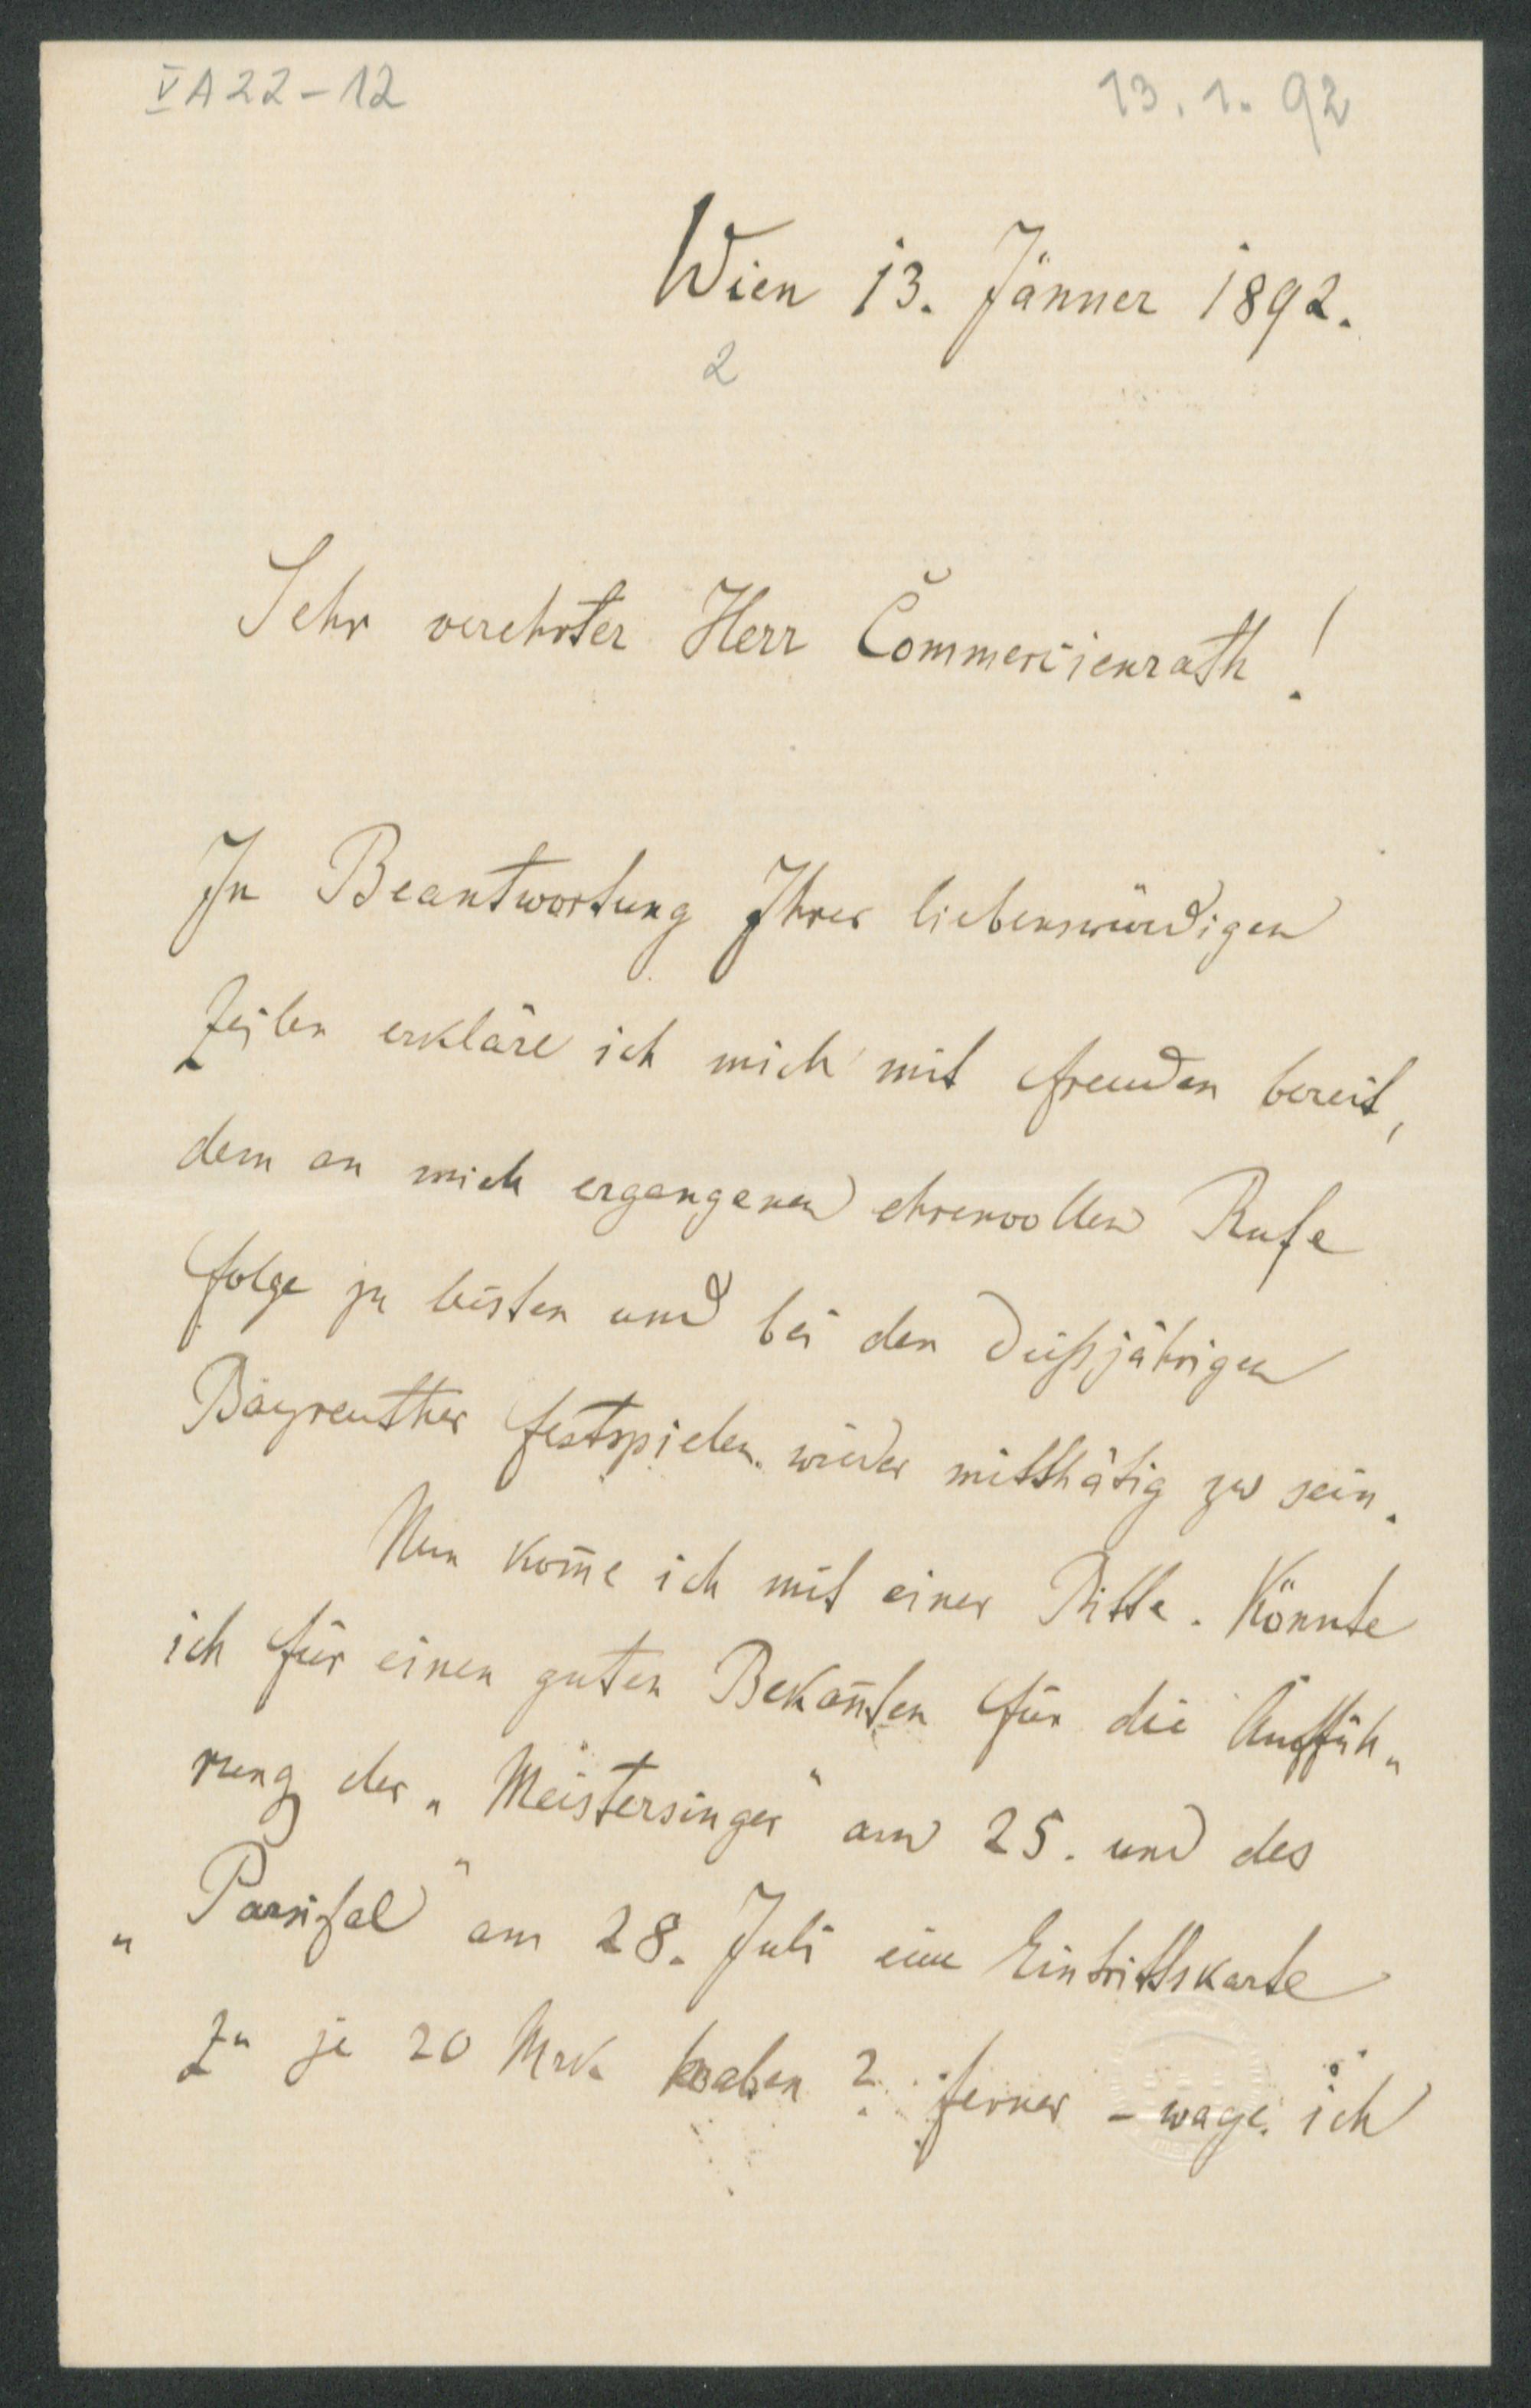 VA22-12
13.1.92
Wien 13. Jänner 1892.
2
Sehr verehrter Herr Commercienrath!
In Beantwortung Ihrer liebenswürdigen
Zeilen erkläre ich mich mit Freuden bereit,
dem an mich ergangenen ehrenvollen Rufe
Folge zu leisten und bei den dießjährigen
Bayreuther Festspielen wieder mitthätig zu sein.
Nun kom̅e ich mit einer Bitte. Könnte
ich für einen guten Bekan̅ten für die Auffüh„
rung der „Meistersinger“ am 25. und des
„Parsifal“ am 28. Juli eine Eintrittskarte
zu je 20 Mrk haben? Ferner - wage ich